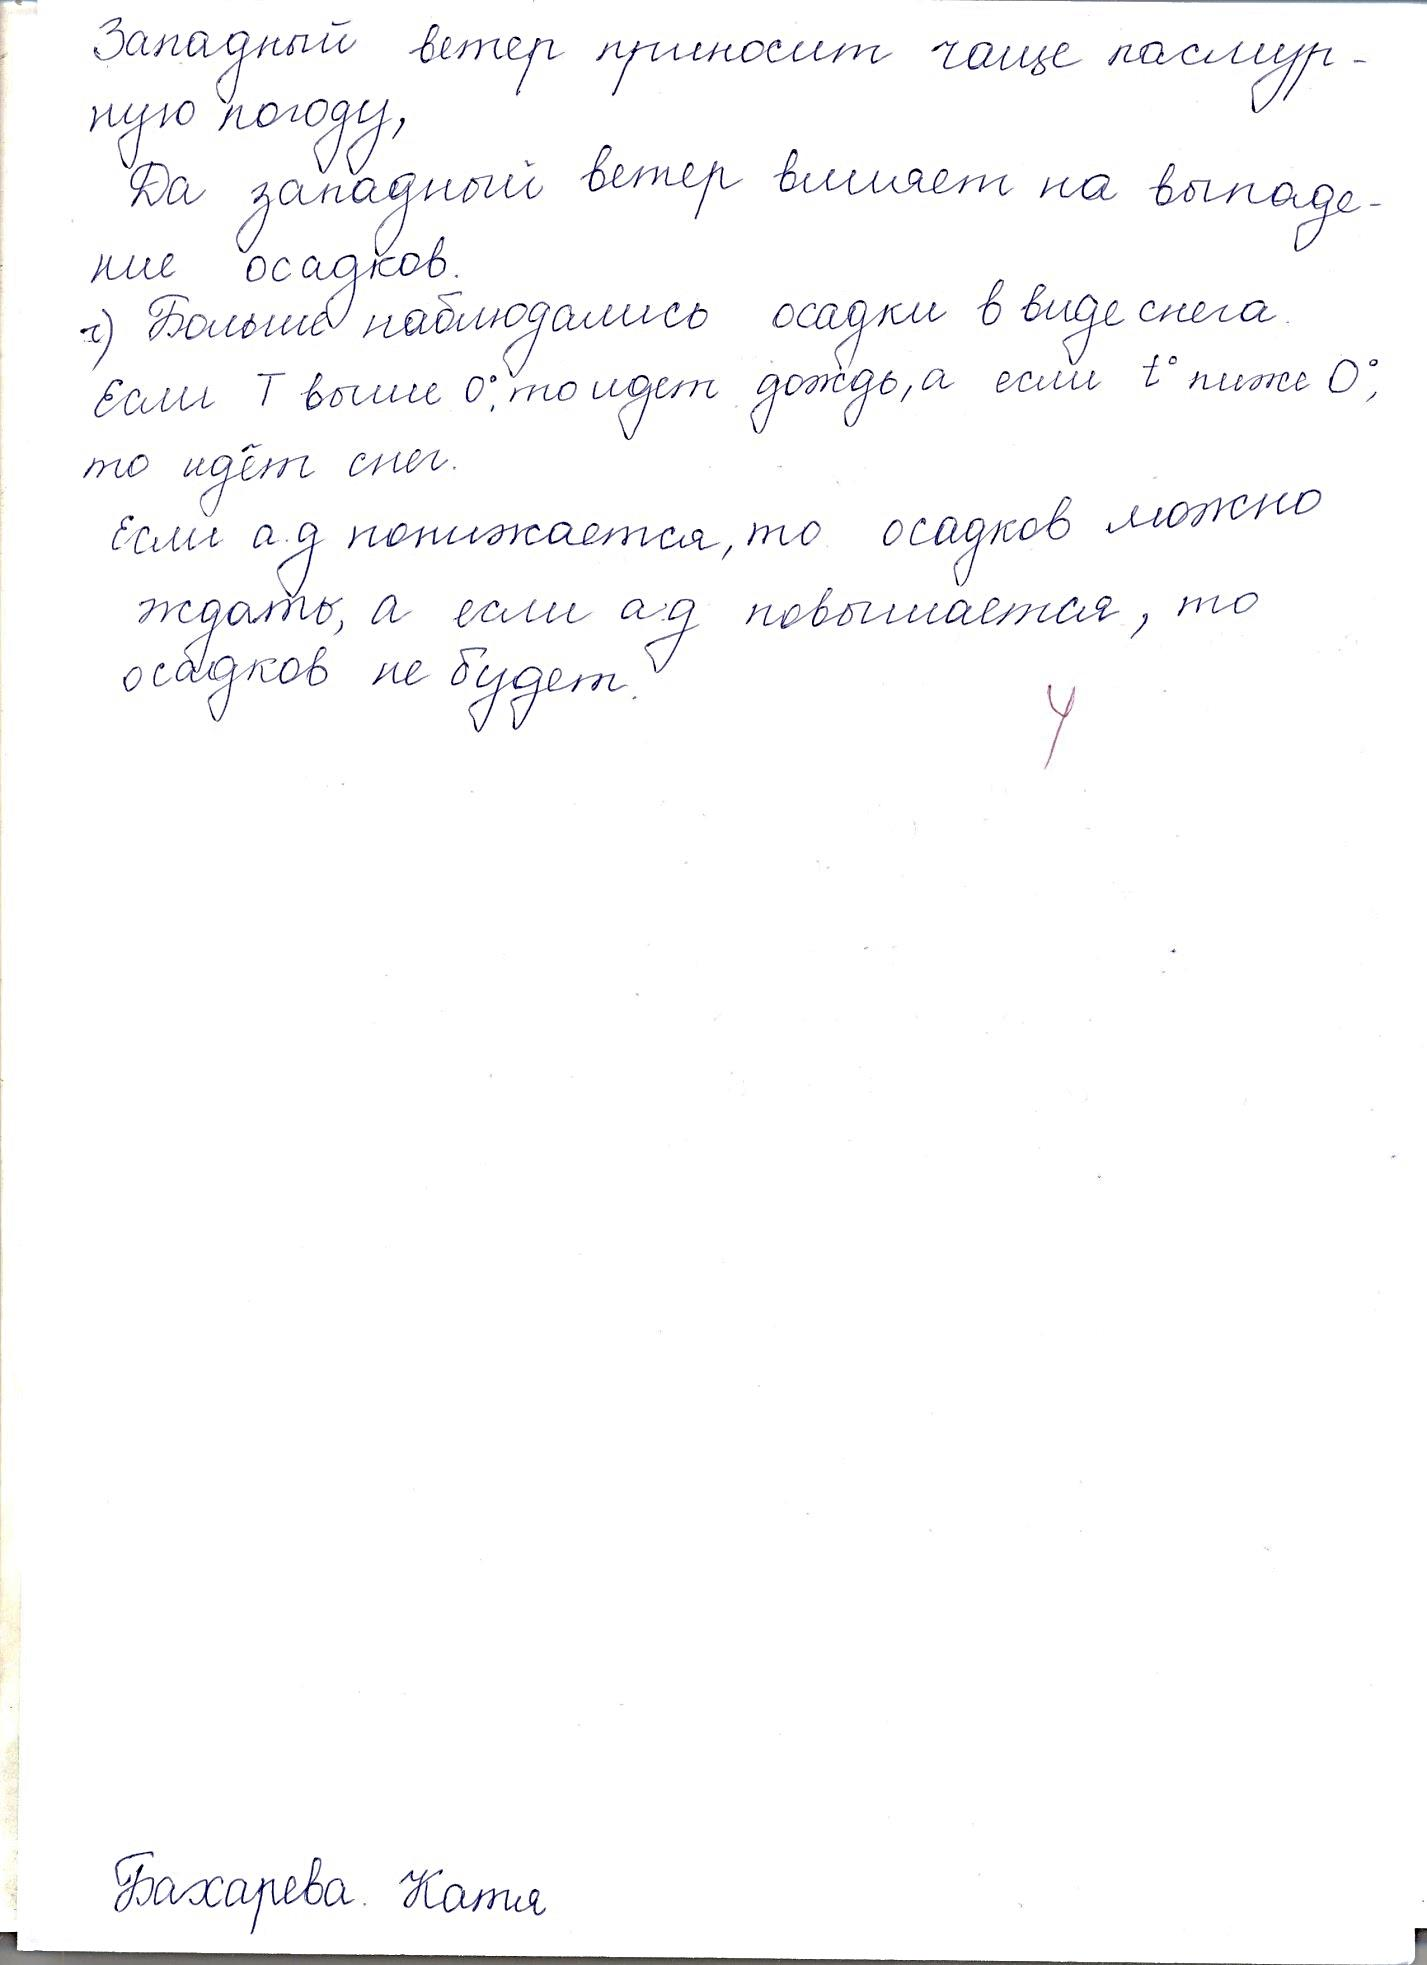 Западный ветер приносит чаще пасмур-
ную погоду,
Да западный ветер влияет на выпаде-
ние осадков.
г) Больше наблюдались осадки в виде снега.
Если T выше 0°, то идет дождь, а если t° ниже 0°,
то идёт снег.
Если а.д понижается, то осадков можно
ждать, а если а.д повышается, то
осадков не будет.
4
Бахарева. Катя